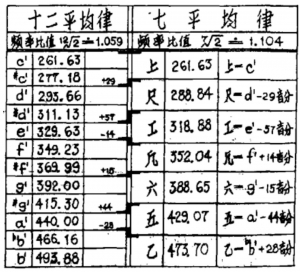 十二平均律 七平均律
频率比值 ¹²√2≐1.059 频率比值 ⁷√2≐1.104
c' 261.63 上 261.63 上=c'
#c' 277.18 +29
d' 293.66 尺 288.84 尺=d'-29音分
#d' 311.13 +37 工 318.88 工=e'-57音分
e' 329.63 -14
f' 349.23 凡 352.04 凡=f'+14音分
#f' 369.99
g' 392.00 六 388.65 六=g'-15音分
#g' 415.30 +44 五 429.07 五=a'-44音分
a' 440.00 -28
b' 466.16 乙 473.70 乙=ᵇb'+28音分
b' 493.88